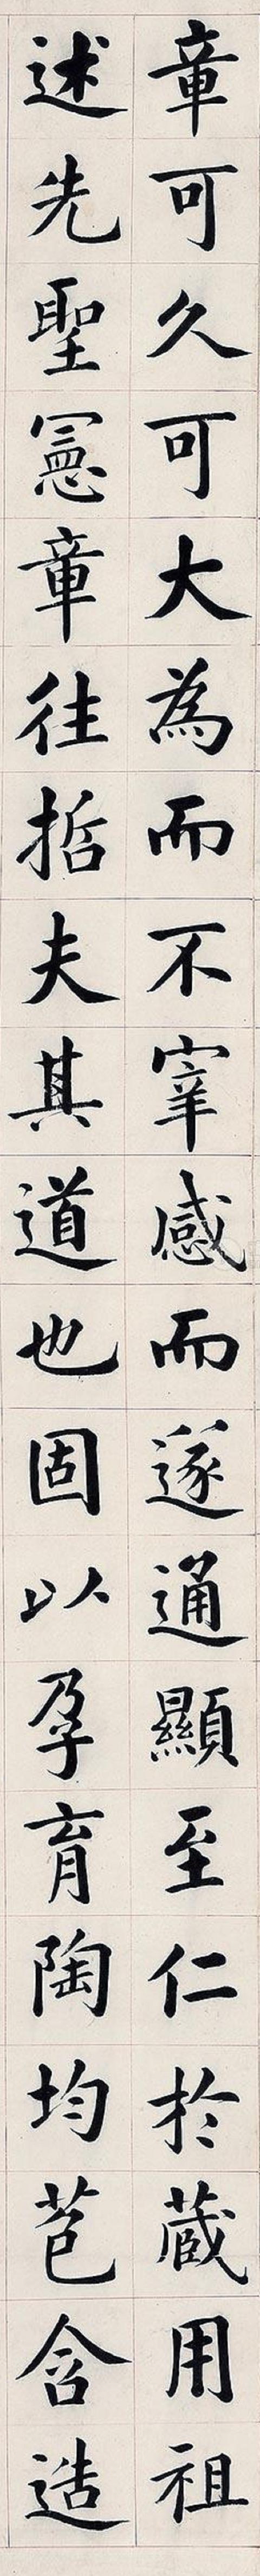 章可久可大為而不宰感而遂通顯至仁於蔵用祖
述先聖憲章往哲夫其道也固以孕育陶均苞含造